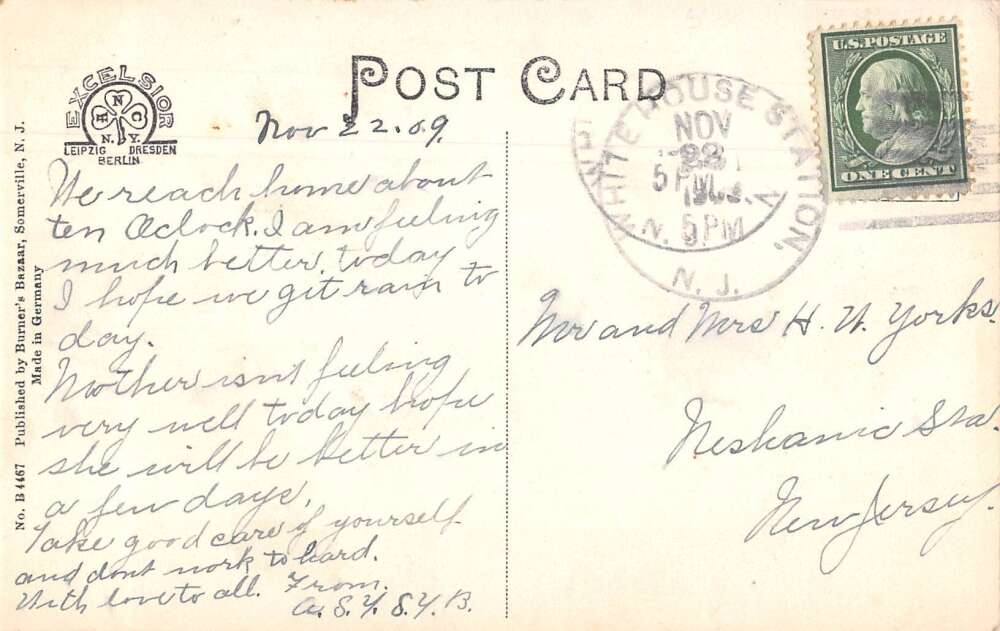 POST CARD
EXCELSIOR
H N C
N. Y.
LEIPZIG DRESDEN
BERLIN
No. B 4467 Published by Burner's Bazaar, Somerville, N. J.
Made in Germany
Nov 22.09.
We reach home about
ten Oclock. I am feeling
much better today
I hope we git rain to
day.
Mother isnt feeling
very well today hope
she will be better in
a few days.
Take good care of yourself
and dont work to hard.
With love to all. From.
A. S. Y. S. Y. B.
WHITE HOUSE STATION,
NOV
22
1909
5 PM
N. J.
U.S. POSTAGE
ONE CENT
Mr and Mrs H. N. Yorks.
Neshanic Sta.
New Jersey.